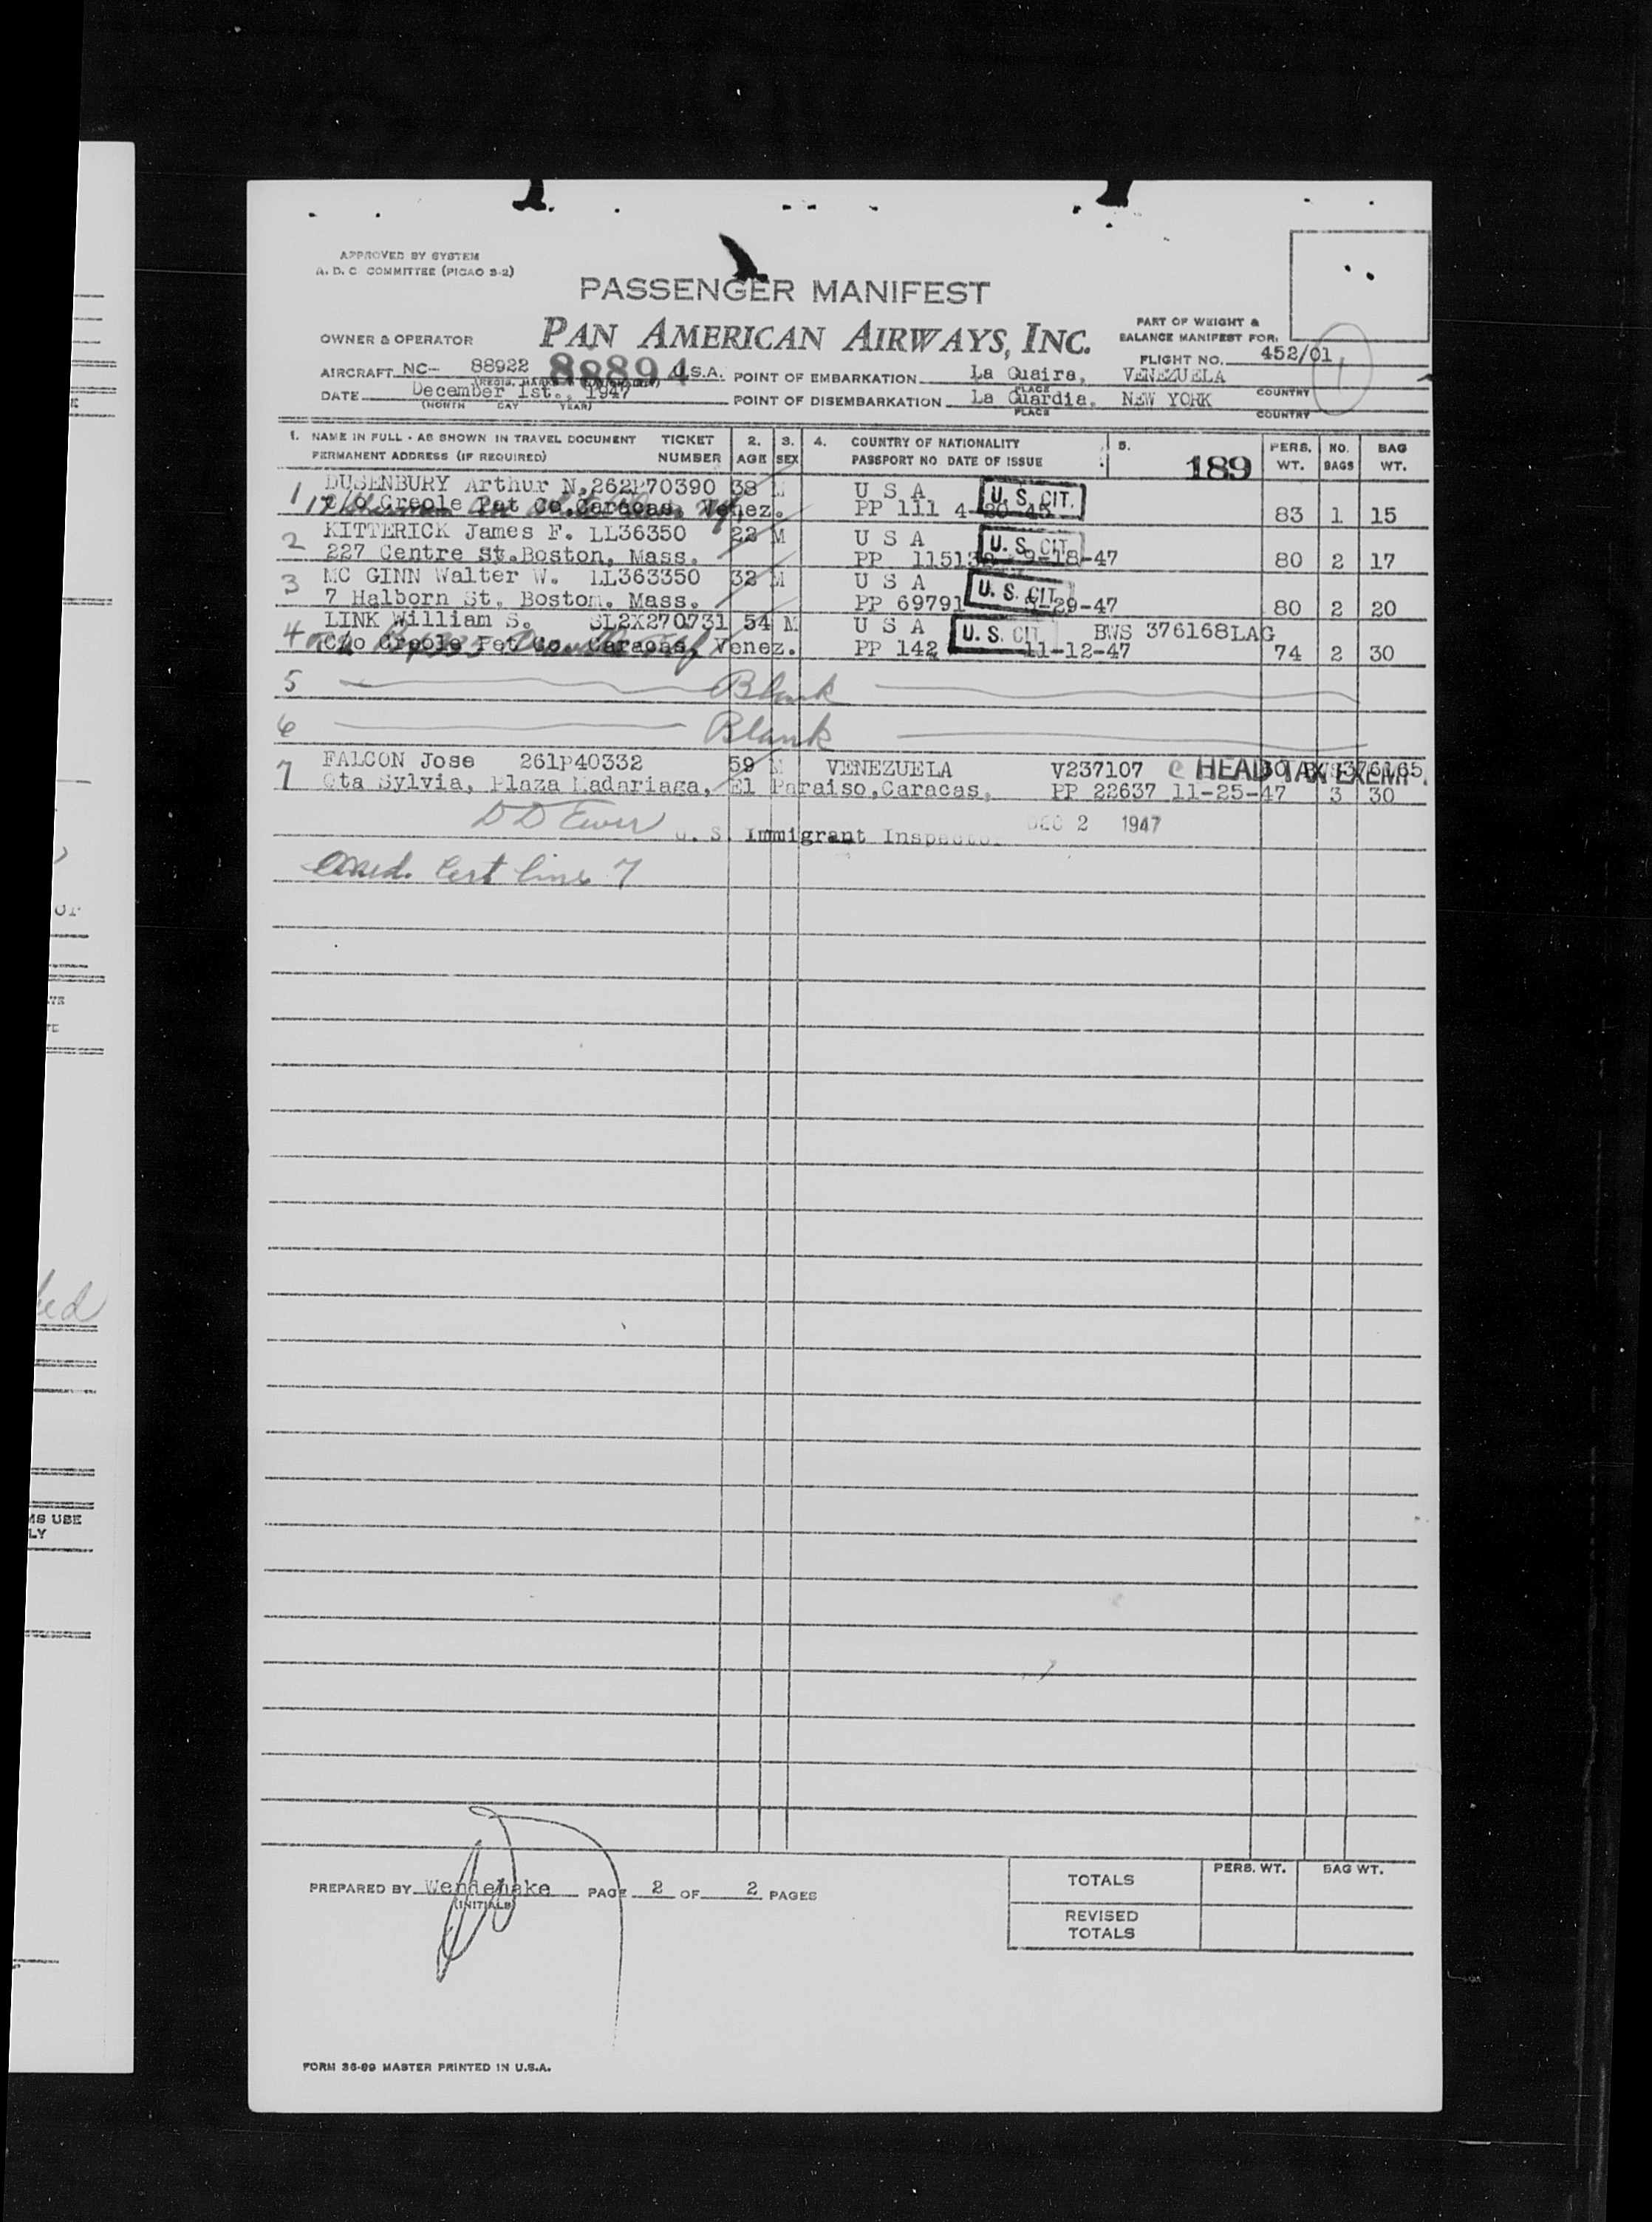 APPROVED BY SYSTEM
A. D. C. COMMITTEE (PICAO S-2)
PASSENGER MANIFEST
OWNER & OPERATOR PAN AMERICAN AIRWAYS, INC.
PART OF WEIGHT &
BALANCE MANIFEST FOR:
FLIGHT NO. 452/01
AIRCRAFT NC- 88922 88894 U.S.A. POINT OF EMBARKATION La Guaira, VENEZUELA
PLACE COUNTRY
DATE December 1st., 1947 POINT OF DISEMBARKATION La Guardia, NEW YORK
(MONTH DAY YEAR) PLACE COUNTRY
1. NAME IN FULL - AS SHOWN IN TRAVEL DOCUMENT TICKET 2. 3. 4. COUNTRY OF NATIONALITY 5. PERS. NO. BAG
PERMANENT ADDRESS (IF REQUIRED) NUMBER AGE SEX PASSPORT NO DATE OF ISSUE 189 WT. BAGS WT.
1 DUSENBURY Arthur N. 262P70390 38 M U S A U. S. CIT.
c/o Creole Pet Co. Caracas, Venez. PP 111 83 1 15
2 KITTERICK James F. LL36350 22 M U S A U. S. CIT
227 Centre St. Boston, Mass. PP 9-18-47 80 2 17
3 MC GINN Walter W. LL363350 32 M U S A U. S. CIT.
7 Halborn St. Boston. Mass. PP 69791 80 2 20
4 LINK William S. SL2X270731 54 M U S A U. S. CIT BWS 376168LAG
C/o Creole Pet Co. Caracas, Venez. PP 142 11-12-47 74 2 30
5 Blank
6 Blank
7 FALCON Jose 261P40332 59 M VENEZUELA V237107 HEAD TAX EXEMPT.
Qta Sylvia, Plaza Madariaga, El Paraiso, Caracas, PP 22637 11-25-47 3 30
U. S. Immigrant Inspector DEC 2 1947
Cert line 7
PREPARED BY Wendehake PAGE 2 OF 2 PAGES
(INITIALS)
PERS. WT. BAG WT.
TOTALS
REVISED
TOTALS
FORM 36-89 MASTER PRINTED IN U.S.A.